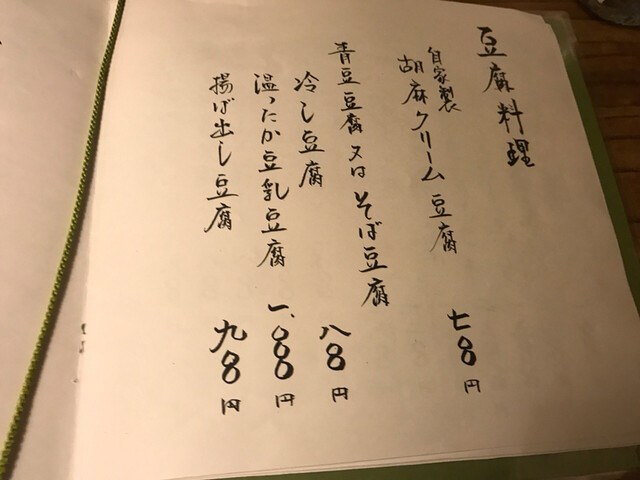 豆腐料理
自家製
胡麻クリーム豆腐 七〇〇円
青豆豆腐又はそば豆腐
冷し豆腐 八〇〇円
温ったか豆乳豆腐 一、〇〇〇円
揚げ出し豆腐 九〇〇円